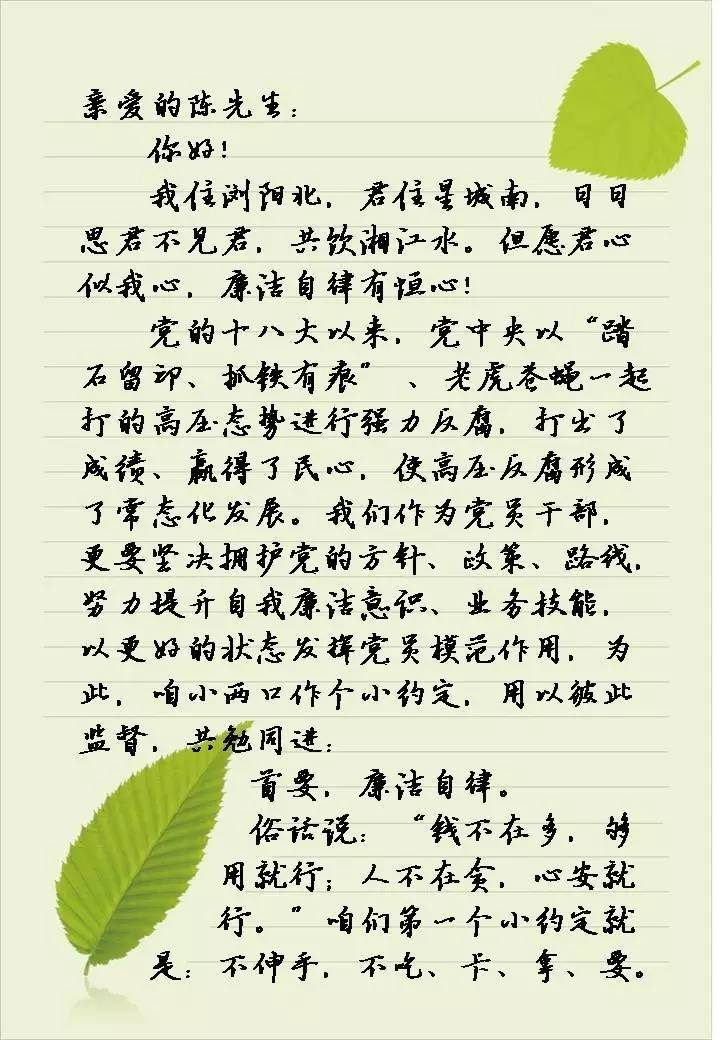 亲爱的陈先生：
你好！
我住浏阳北，君住星城南，日日
思君不见君，共饮湘江水。但愿君心
似我心，廉洁自律有恒心！
党的十八大以来，党中央以“踏
石留印、抓铁有痕”、老虎苍蝇一起
打的高压态势进行强力反腐，打出了
成绩、赢得了民心，使高压反腐形成
了常态化发展。我们作为党员干部，
更要坚决拥护党的方针、政策、路线，
努力提升自我廉洁意识、业务技能，
以更好的状态发挥党员模范作用，为
此，咱小两口作个小约定，用以彼此
监督，共勉同进：
首要，廉洁自律。
俗话说：“钱不在多，够
用就行；人不在贪，心安就
行。”咱们第一个小约定就
是：不伸手，不吃、卡、拿、要。